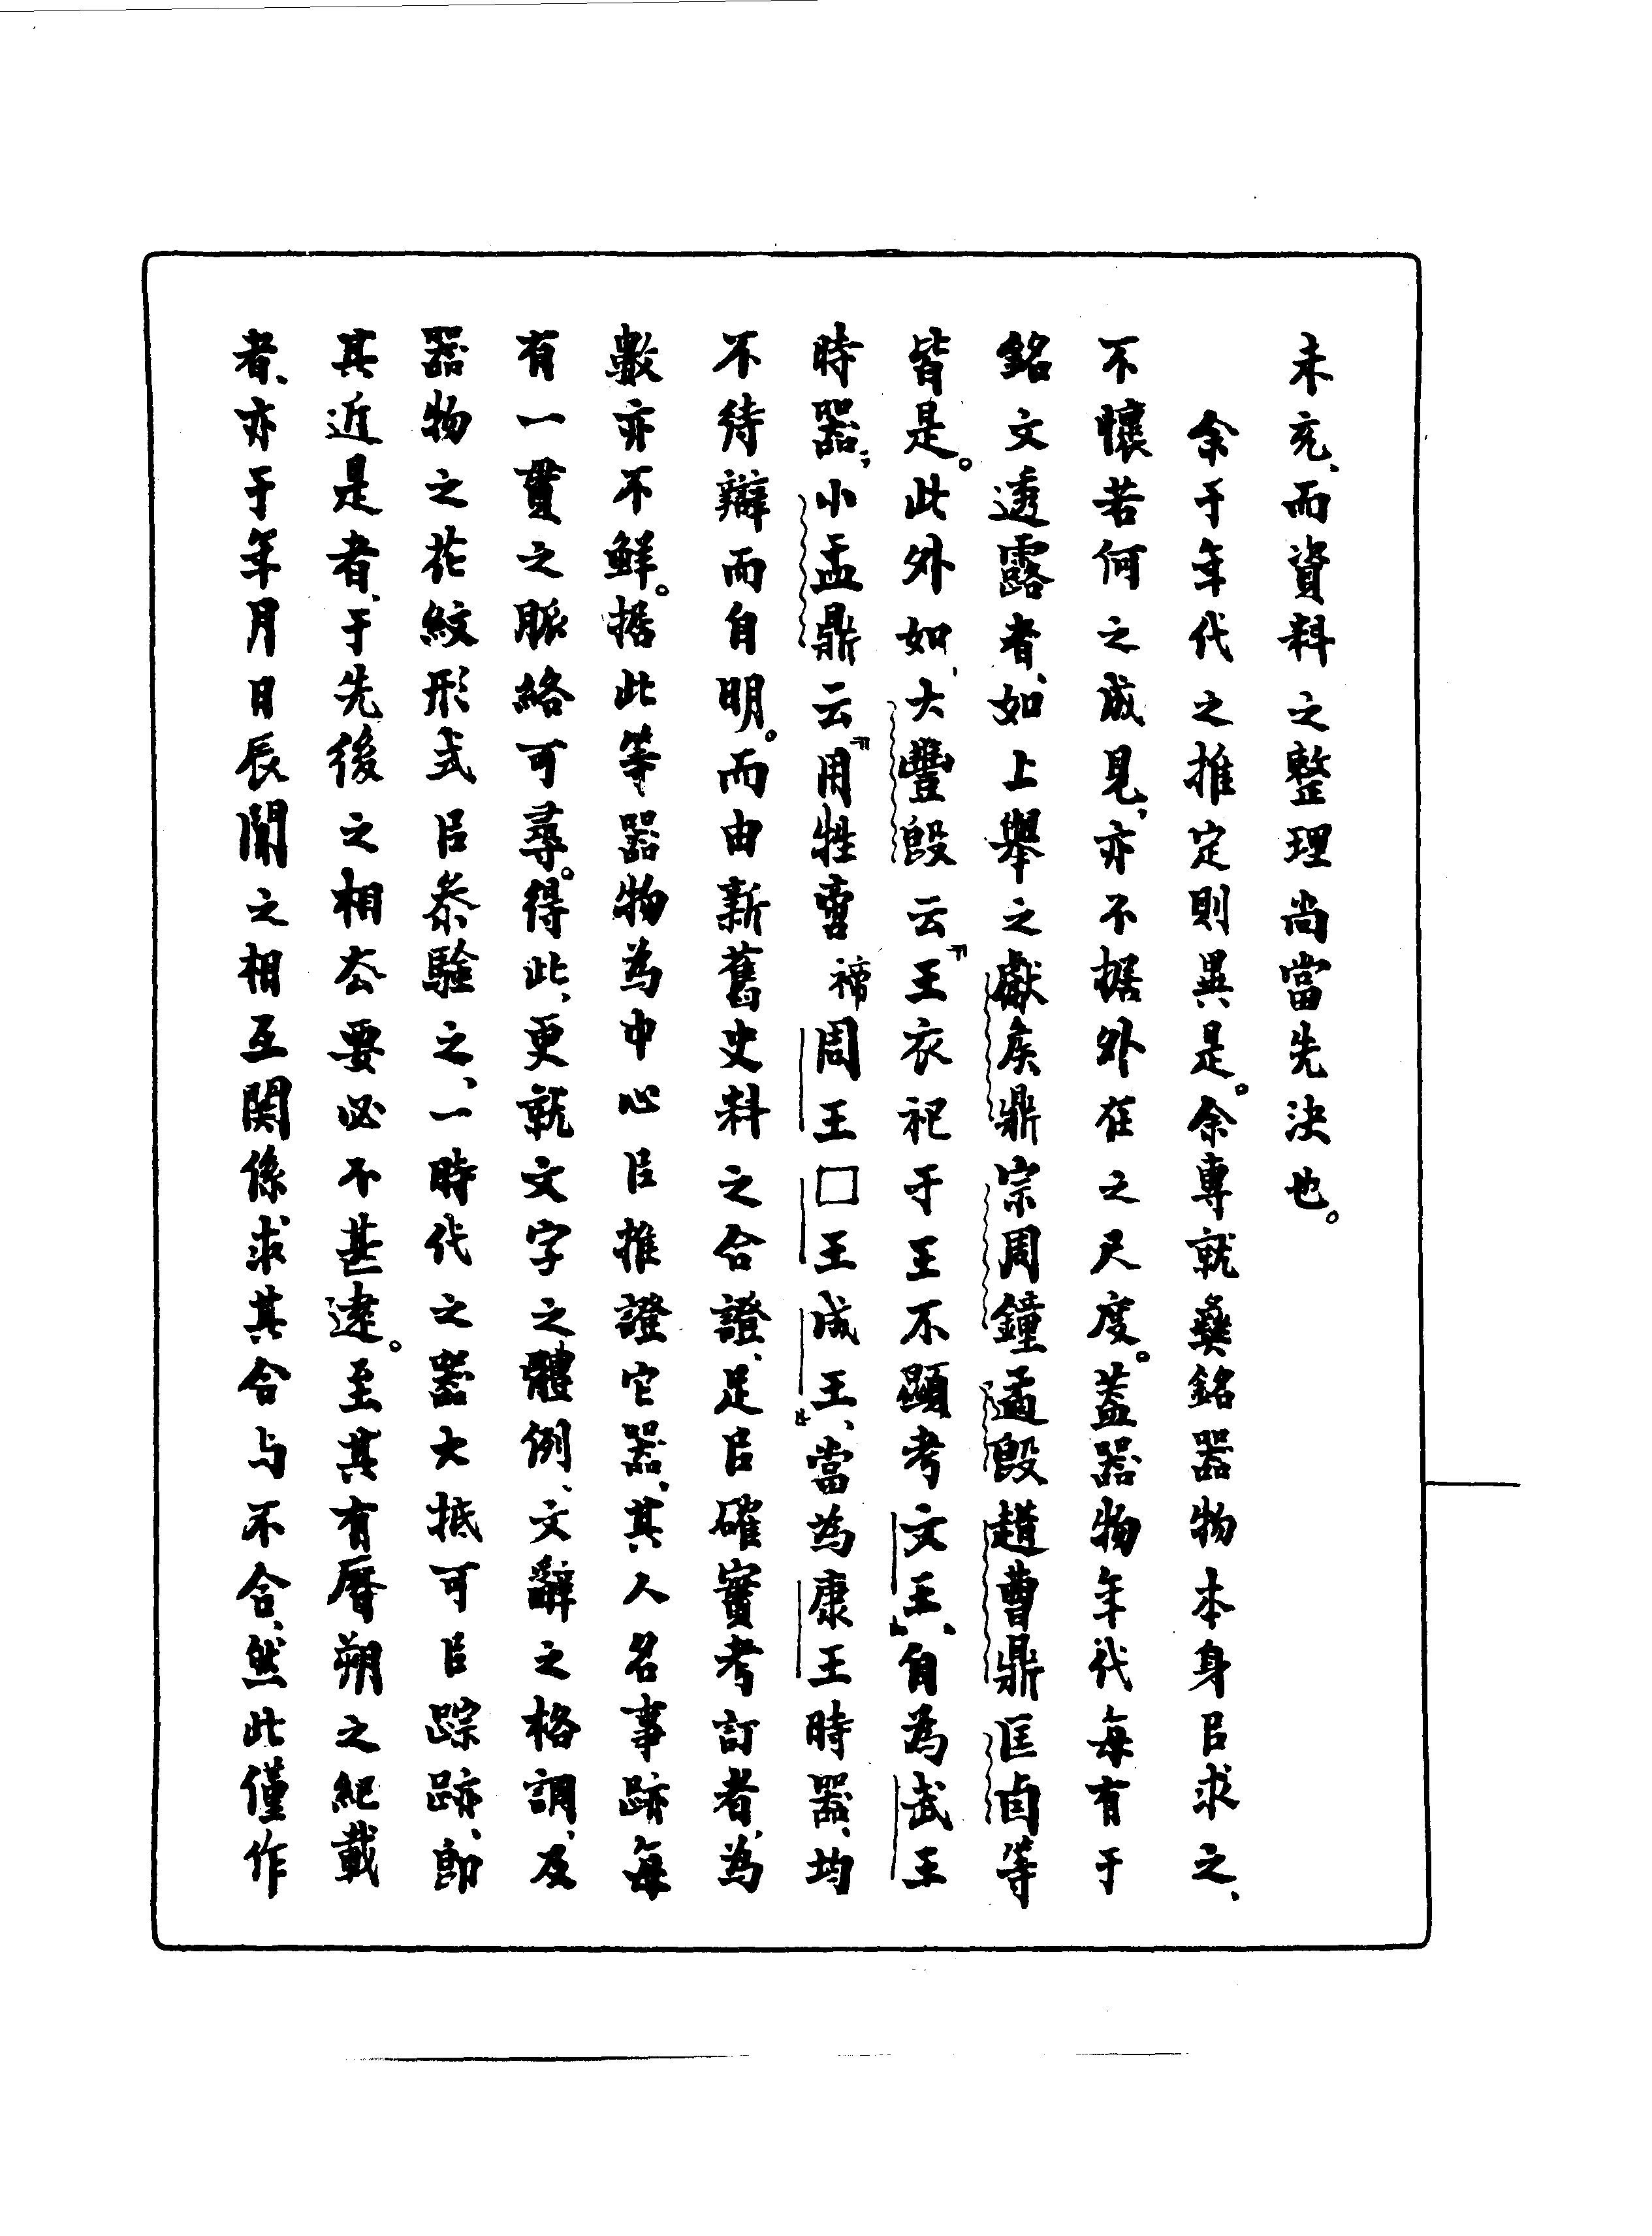 未充、而資料之整理尚當先決也。
余于年代之推定則異是。余專就彝銘器物本身㠯求之、
不懷若何之成見、亦不据外在之尺度。蓋器物年代每有于
銘文透露者、如上舉之獻矦鼎宗周鐘遹𣪘趞曹鼎匡卣等
皆是。此外如、大豐𣪘云『王衣祀于王不顯考文王』、自為武王
時器；小盂鼎云『用牲啻禘周王囗王成王』、當為康王時器、均
不待辯而自明。而由新舊史料之合證、足㠯確實考訂者、為
數亦不鮮。据此等器物為中心㠯推證它器、其人名事跡每
有一貫之脈絡可尋。得此、更就文字之體例、文辭之格調、及
器物之花紋形式㠯叅驗之、一時代之器大抵可㠯踪跡、卽
其近是者、于先後之相去要必不甚遠。至其有曆朔之紀載
者、亦于年月日辰閒之相互関係求其合与不合、然此僅作